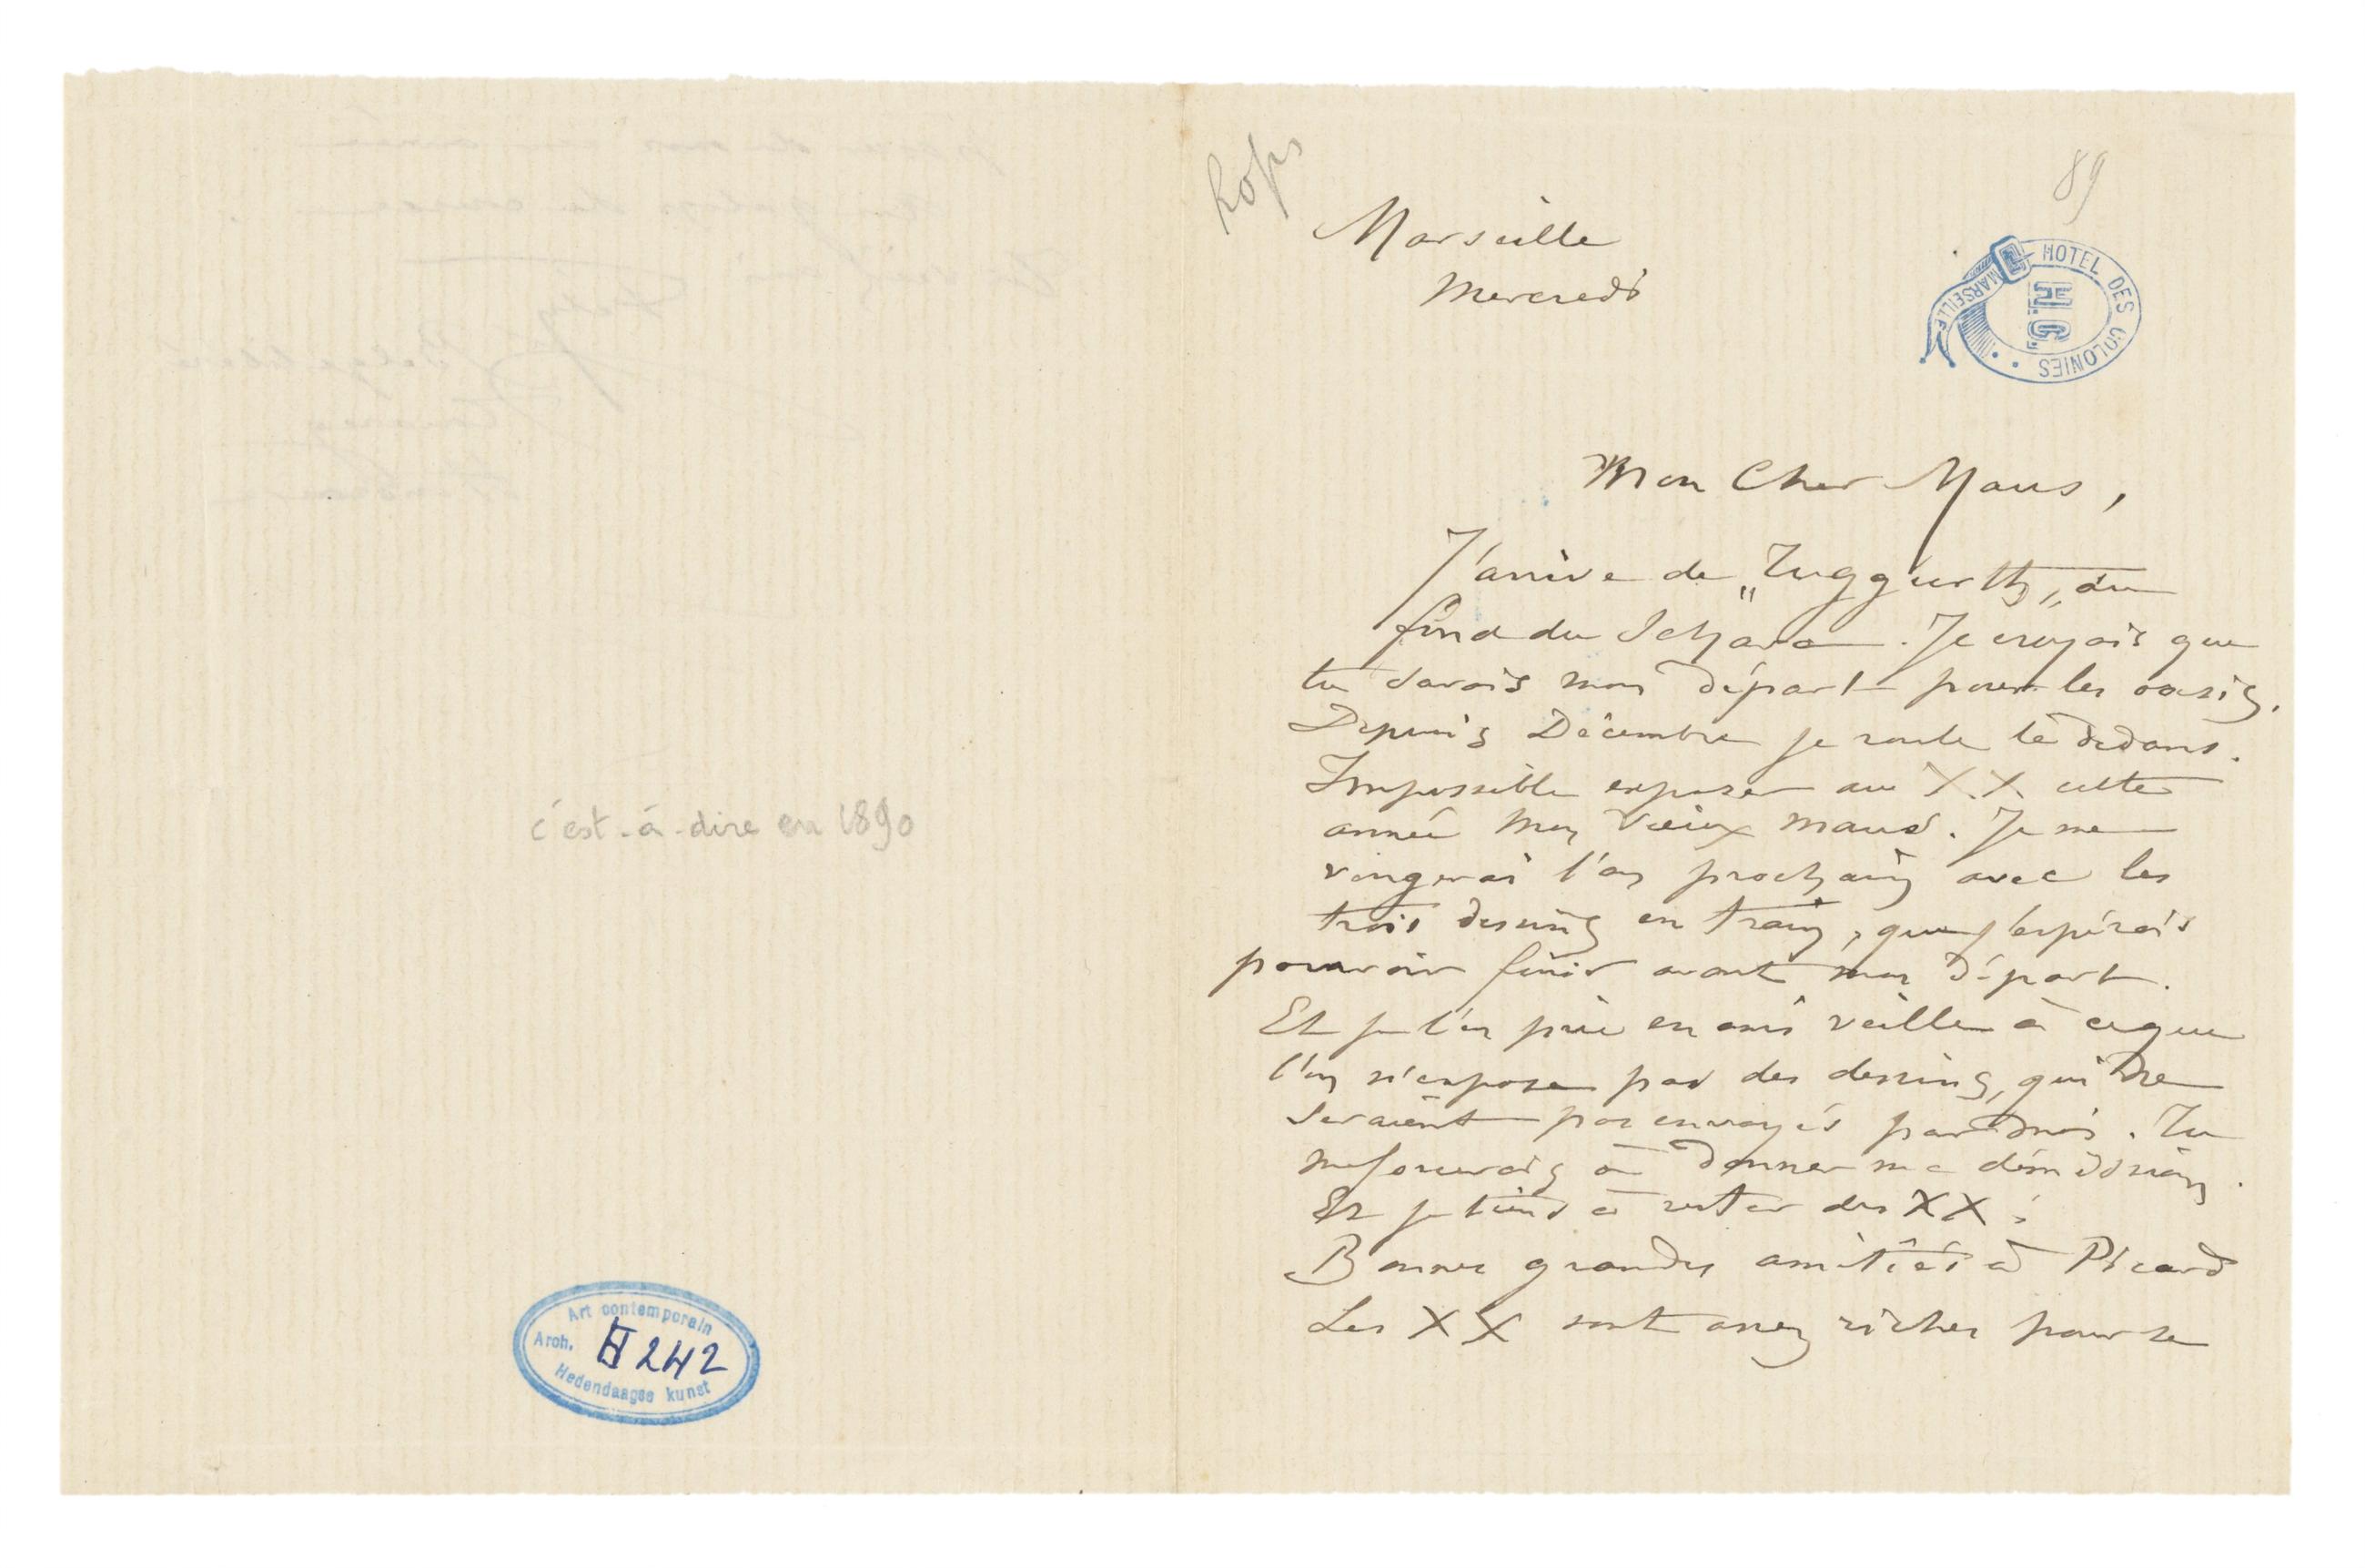 c'est-à-dire en 1890
Art contemporain
Arch. II 242
Hedendaagse kunst
Rops
89
Marseille
Mercredi
HOTEL DES COLONIES
MARSEILLE
H C
Mon Cher Maus,
J'arrive de „Tuggurth„ du
fond du Sahara. Je croyais que
tu savais mon départ pour les oasis.
Depuis Décembre je roule là dedans.
Impossible exposer aux X.X. cette
année mon vieux Maus. Je me
vengerai l'an prochain avec les
trois dessins en train, que j'espérais
pouvoir finir avant mon départ.
Et je t'en prie en ami veille à ce que
l'on n'expose pas des dessins, qui ne
seraient pas envoyés par moi. Tu
me forcerais à donner ma démission.
Et je tiens à rester des XX!
Bonnes grandes amitiés à Picard
Les XX sont assez riches pour se